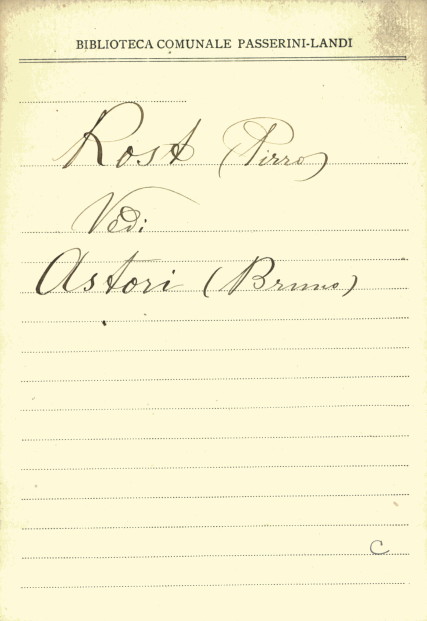 BIBLIOTECA COMUNALE PASSERINI-LANDI
Rost (Pirro)
Vedi
Astori (Bruno)
C